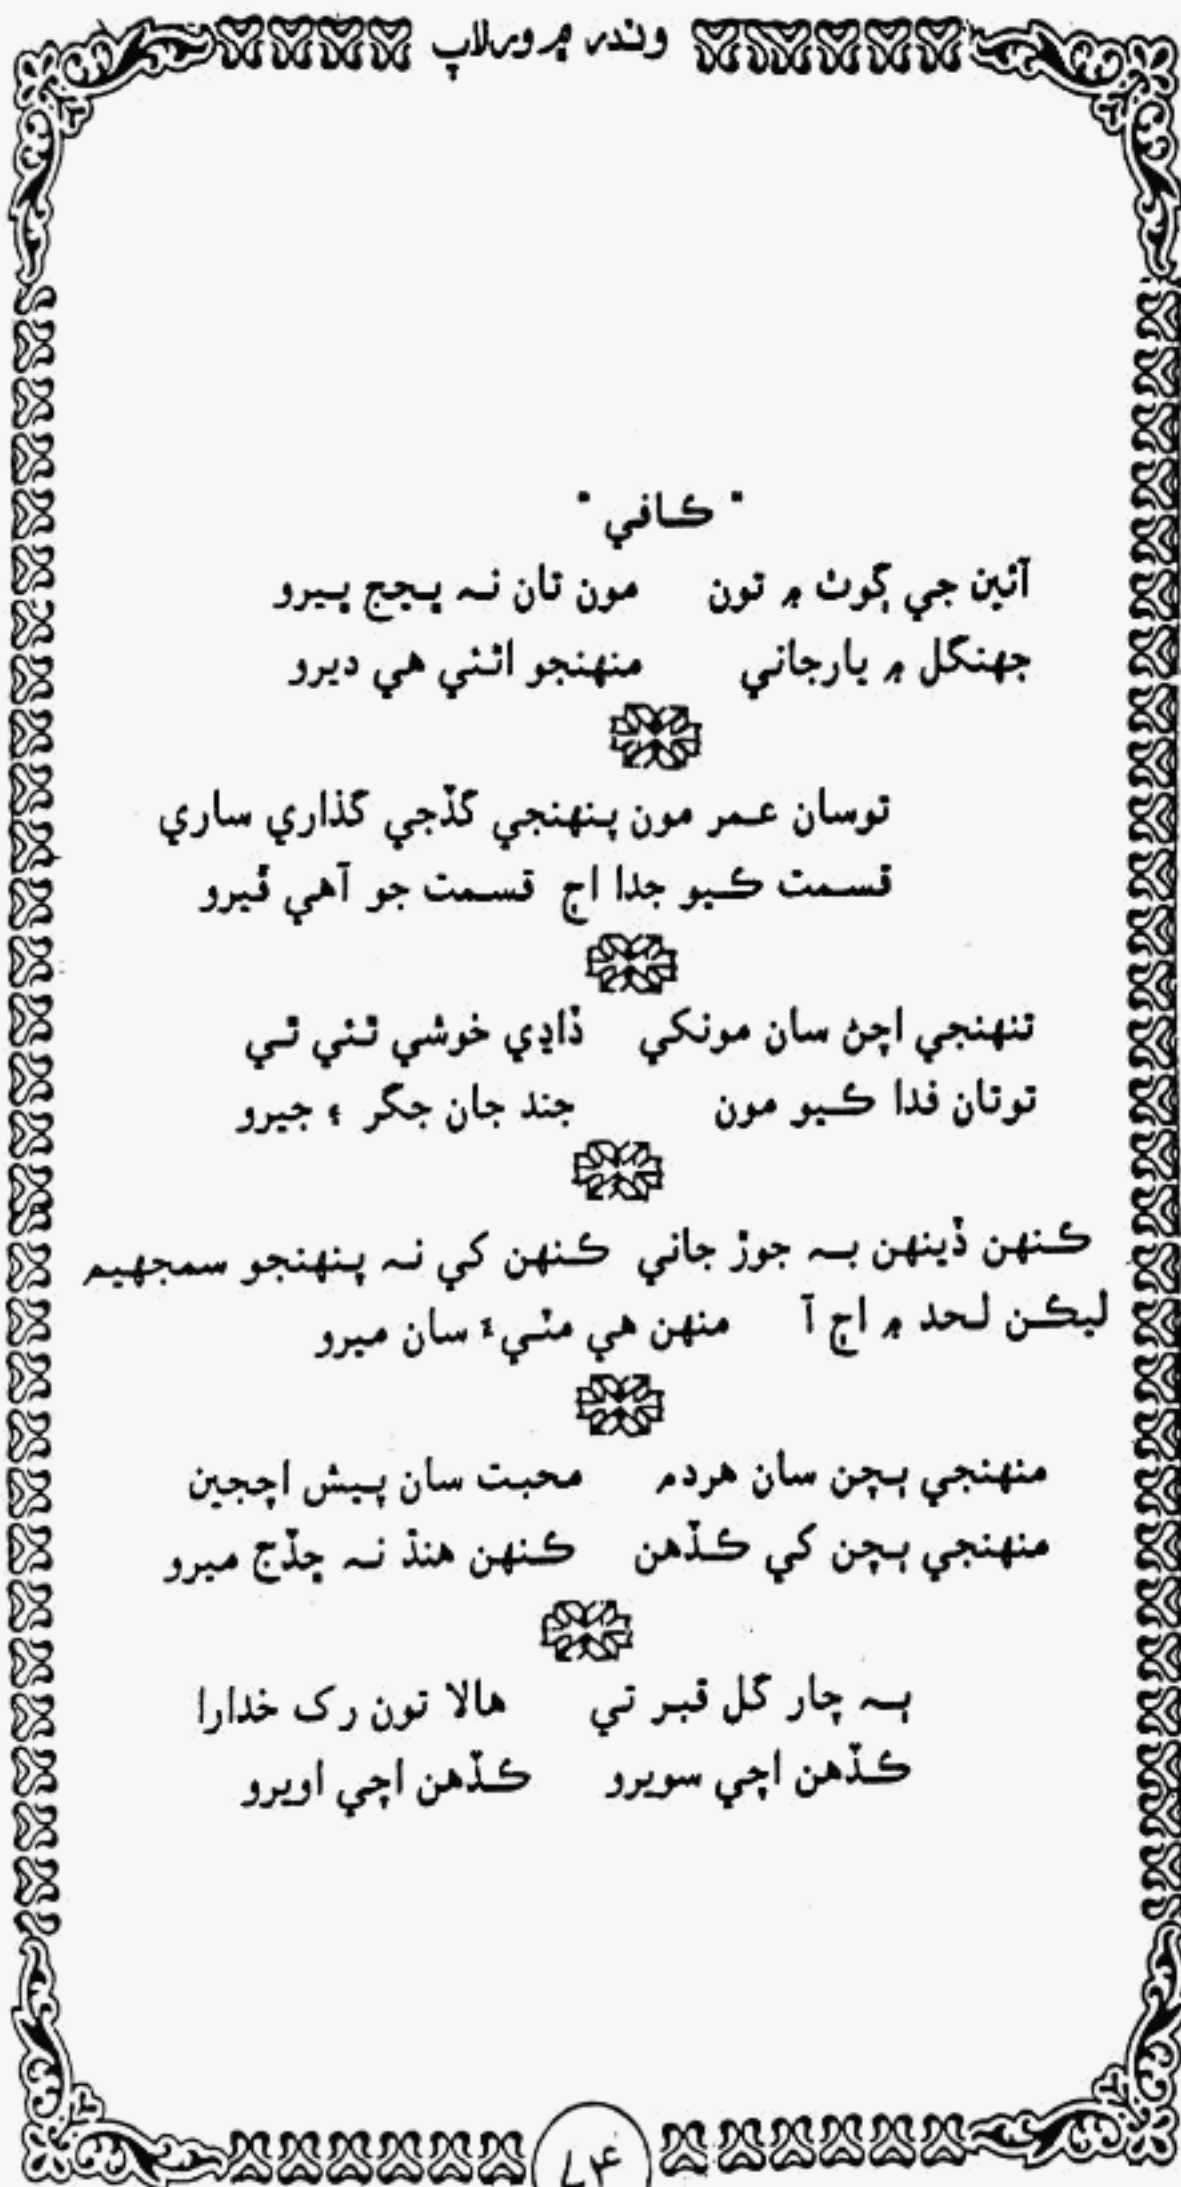 وندر ۾ ورلاپ
" ڪافي "
آئين جي ڳوٺ ۾ تون مون تان نہ ڀڃج ڀيرو
جهنگل ۾ يارجاني منهنجو اٿئي هي ديرو
توسان عمر مون پنهنجي گڏجي گذاري ساري
قسمت ڪيو جدا اڄ قسمت جو آهي ڦيرو
تنهنجي اچڻ سان مونکي ڏاڍي خوشي ٿئي ٿي
توتان فدا ڪيو مون جند جان جگر ۽ جيرو
ڪنهن ڏينهن بہ جوڙ جاني ڪنهن کي نہ پنهنجو سمجهيم
ليڪن لحد ۾ اڄ آ منهن هي مٽيءَ سان ميرو
منهنجي ٻچن سان هردم محبت سان پيش اچجين
منهنجي ٻچن کي ڪڏهن ڪنهن هنڌ نہ ڇڏج ميرو
ٻہ چار گل قبر تي هالا تون رک خدارا
ڪڏهن اچي سويرو ڪڏهن اچي اويرو
۷۴